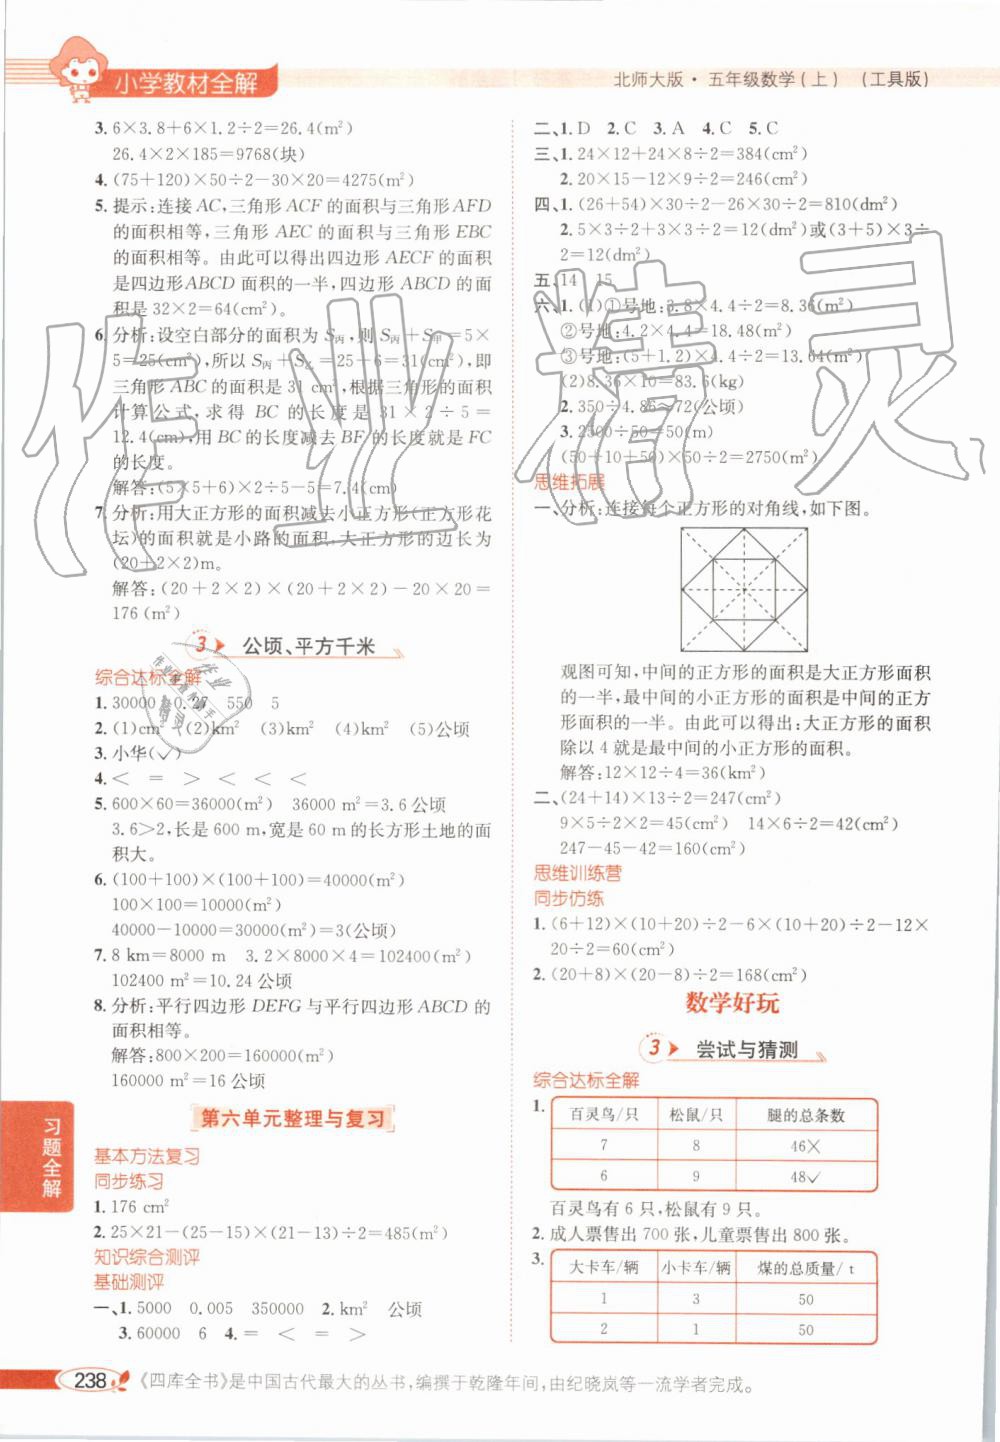 小学教材全解
北师大版·五年级数学(上) (工具版)
3. 6×3.8+6×1.2÷2=26.4(m²)
26.4×2×185=9768(块)
4. (75+120)×50÷2-30×20=4275(m²)
5. 提示:连接AC,三角形ACF的面积与三角形AFD
的面积相等,三角形AEC的面积与三角形EBC
的面积相等。由此可以得出四边形AECF的面积
是四边形ABCD面积的一半,四边形ABCD的面
积是32×2=64(cm²)。
6. 分析:设空白部分的面积为S丙,则S丙+S甲=5×
5=25(cm²),所以S丙+S乙=25+6=31(cm²),即
三角形ABC的面积是31 cm²,根据三角形的面积
计算公式,求得BC的长度是31×2÷5=
12.4(cm),用BC的长度减去BF的长度就是FC
的长度。
解答:(5×5+6)×2÷5-5=7.4(cm)
7. 分析:用大正方形的面积减去小正方形(正方形花
坛)的面积就是小路的面积,大正方形的边长为
(20+2×2)m。
解答:(20+2×2)×(20+2×2)-20×20=
176(m²)
3 公顷、平方千米
综合达标全解
1. 30000 0.27 550 5
2. (1)cm² (2)km² (3)km² (4)km² (5)公顷
3. 小华(✓)
4. < = > < < <
5. 600×60=36000(m²) 36000m²=3.6公顷
3.6>2,长是600 m,宽是60 m的长方形土地的面
积大。
6. (100+100)×(100+100)=40000(m²)
100×100=10000(m²)
40000-10000=30000(m²)=3(公顷)
7. 8 km=8000 m 3.2×8000×4=102400(m²)
102400 m²=10.24公顷
8. 分析:平行四边形DEFG与平行四边形ABCD的
面积相等。
解答:800×200=160000(m²)
160000 m²=16公顷
第六单元整理与复习
基本方法复习
同步练习
1. 176 cm²
2. 25×21-(25-15)×(21-13)÷2=485(m²)
知识综合测评
基础测评
一、1. 5000 0.005 350000 2. km² 公顷
3. 60000 6 4. = < = >
二、1. D 2. C 3. A 4. C 5. C
三、1. 24×12+24×8÷2=384(cm²)
2. 20×15-12×9÷2=246(cm²)
四、1. (26+54)×30÷2-26×30÷2=810(dm²)
2. 5×3÷2+3×3÷2=12(dm²)或(3+5)×3÷
2=12(dm²)
五、14 15
六、1. (1)①号地:3.8×4.4÷2=8.36(m²)
②号地:4.2×4.4=18.48(m²)
③号地:(5+1.2)×4.4÷2=13.64(m²)
(2)8.36×10=83.6(kg)
2. 350÷4.86≈72(公顷)
3. 2500÷50=50(m)
(50+10+50)×50÷2=2750(m²)
思维拓展
一、分析:连接每个正方形的对角线,如下图。
观图可知,中间的正方形的面积是大正方形面积
的一半,最中间的小正方形的面积是中间的正方
形面积的一半。由此可以得出:大正方形的面积
除以4就是最中间的小正方形的面积。
解答:12×12÷4=36(km²)
二、(24+14)×13÷2=247(cm²)
9×5÷2×2=45(cm²) 14×6÷2=42(cm²)
247-45-42=160(cm²)
思维训练营
同步仿练
1. (6+12)×(10+20)÷2-6×(10+20)÷2-12×
20÷2=60(cm²)
2. (20+8)×(20-8)÷2=168(cm²)
数学好玩
3 尝试与猜测
综合达标全解
1. 百灵鸟/只 松鼠/只 腿的总条数
7 8 46×
6 9 48✓
百灵鸟有6只,松鼠有9只。
2. 成人票售出700张,儿童票售出800张。
3. 大卡车/辆 小卡车/辆 煤的总质量/t
1 3 50
2 1 50
习题全解
238 《四库全书》是中国古代最大的丛书,编撰于乾隆年间,由纪晓岚等一流学者完成。
作业精灵